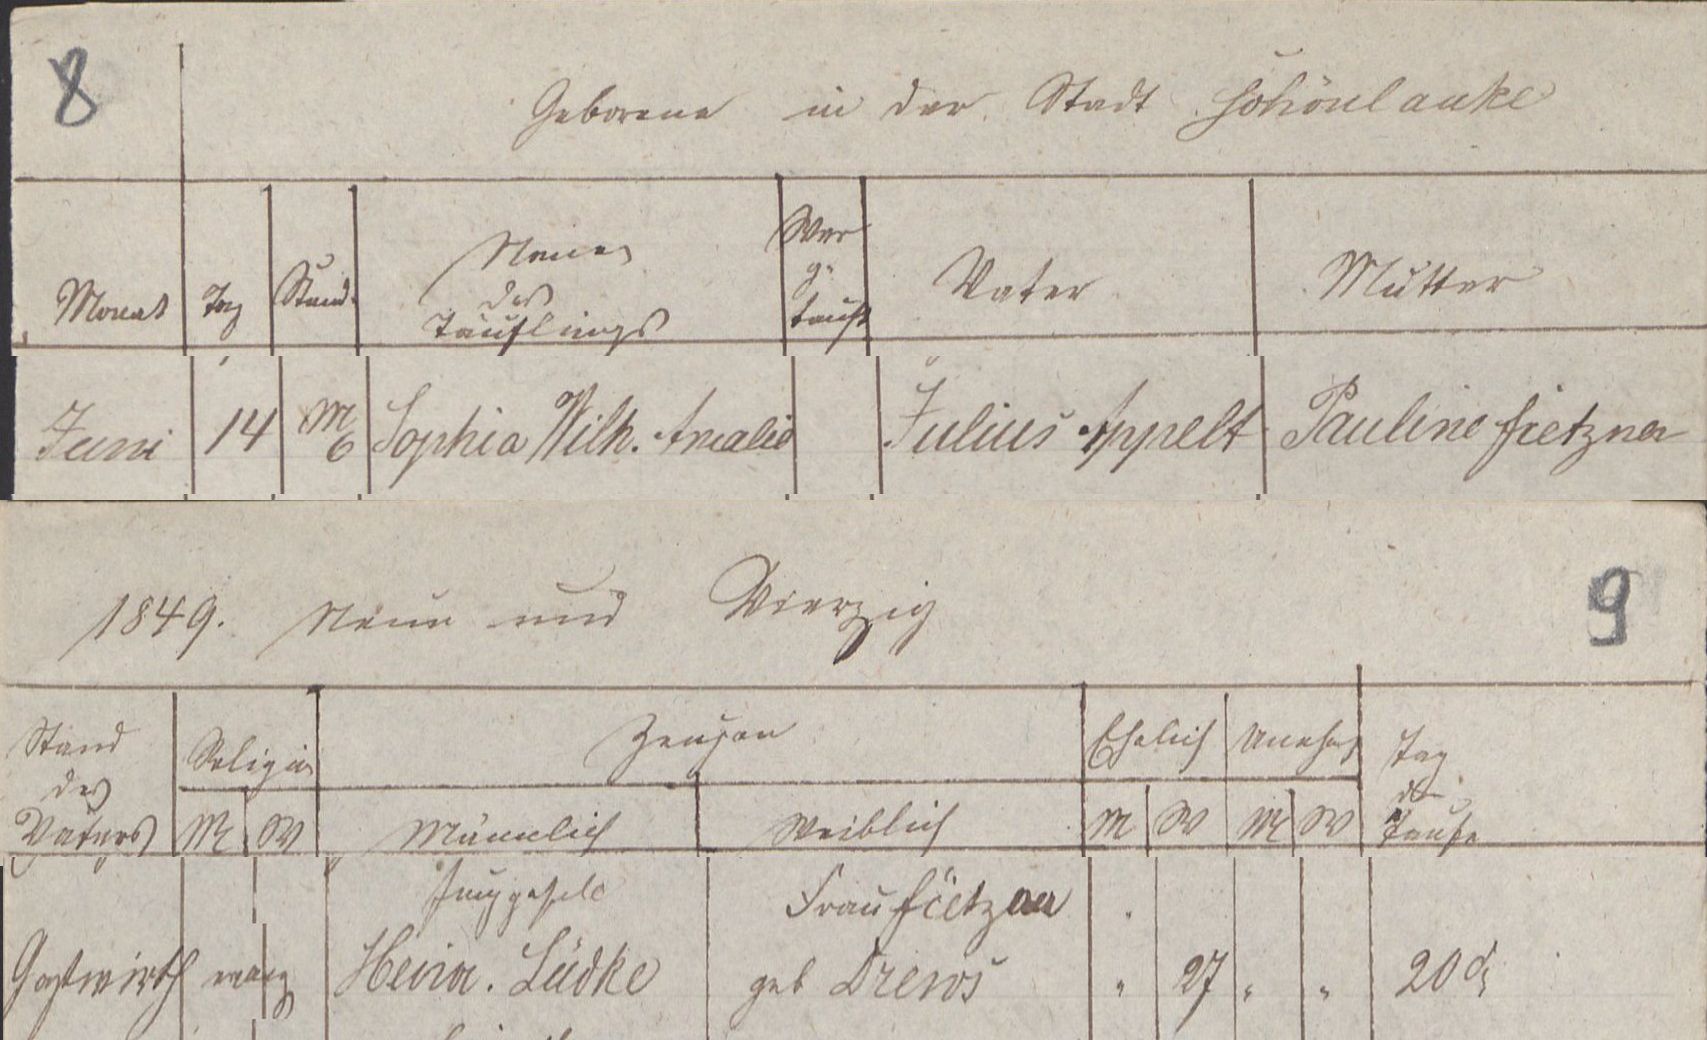 8
Geborene in der Stadt Schönlanke
Monat
Tag
Stund.
Namen
des
Täuflings
Wer
ge
tauft
Vater
Mutter
Juni 14 M 6 Sophia Wilh. Amalie Julius Appelt Pauline Fietzner
1849. Neun und Vierzig
9
Stand
des
Vaters
Religion
M W
Zeugen
Männlich Weiblich
Ehelich
M W
Unehel
M W
Tag
der
Taufe
Junggesele Frau Fietzner
Gastwirth evang Heinr. Lüdke geb Drews " 27 " " 20 d.